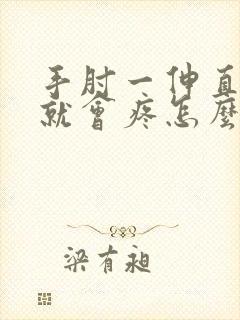 手肘一伸直
就會疼怎麼
梁有昶